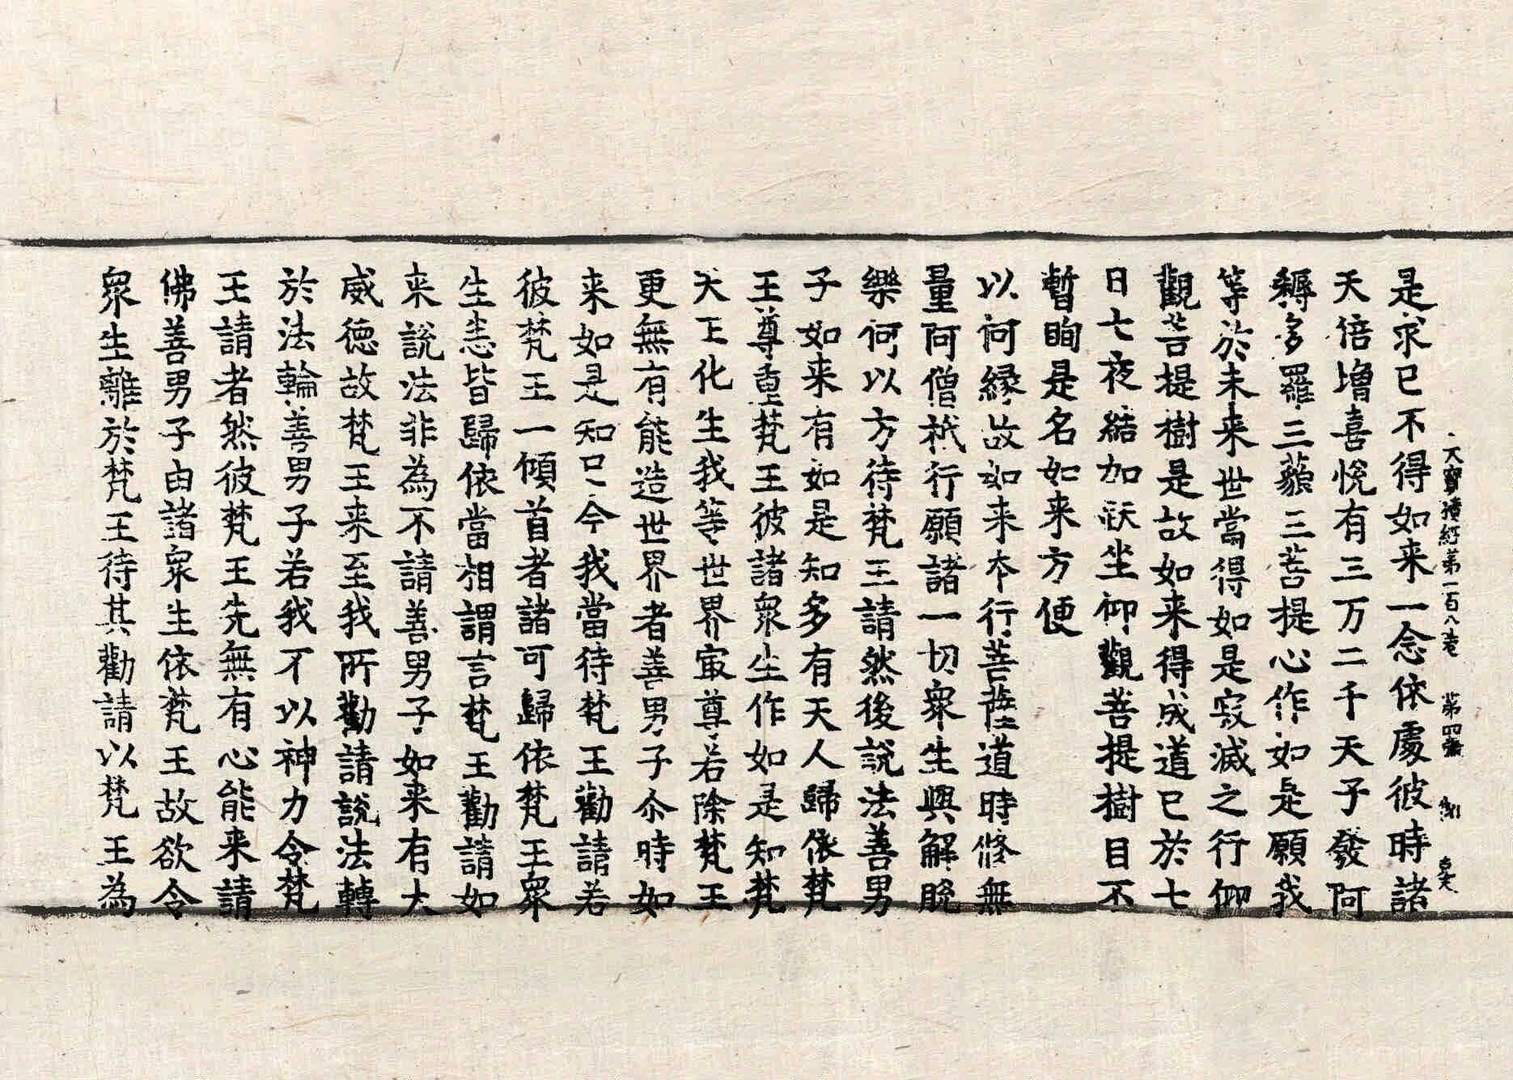 大寶積經第一百八卷 第四張
是求已不得如来一念依處彼時諸
天倍增喜悅有三万二千天子發阿
耨多羅三藐三菩提心作如是願我
等於未来世當得如是寂滅之行仰
觀菩提樹是故如来得成道已於七
日七夜結加趺坐仰觀菩提樹目不
暫眴是名如来方便
以何縁故如来本行菩薩道時修無
量阿僧祇行願諸一切衆生興解脫
樂何以方待梵王請然後說法善男
子如来有如是知多有天人歸依梵
王尊重梵王彼諸衆生作如是知梵
天王化生我等世界㝡尊若除梵王
更無有能造世界者善男子尒時如
来如是知已今我當待梵王勸請若
彼梵王一傾首者諸可歸依梵王衆
生悉皆歸依當相謂言梵王勸請如
来說法非為不請善男子如来有大
威德故梵王来至我所勸請說法轉
於法輪善男子若我不以神力令梵
王請者然彼梵王先無有心能来請
佛善男子由諸衆生依梵王故欲令
衆生離於梵王待其勸請以梵王為